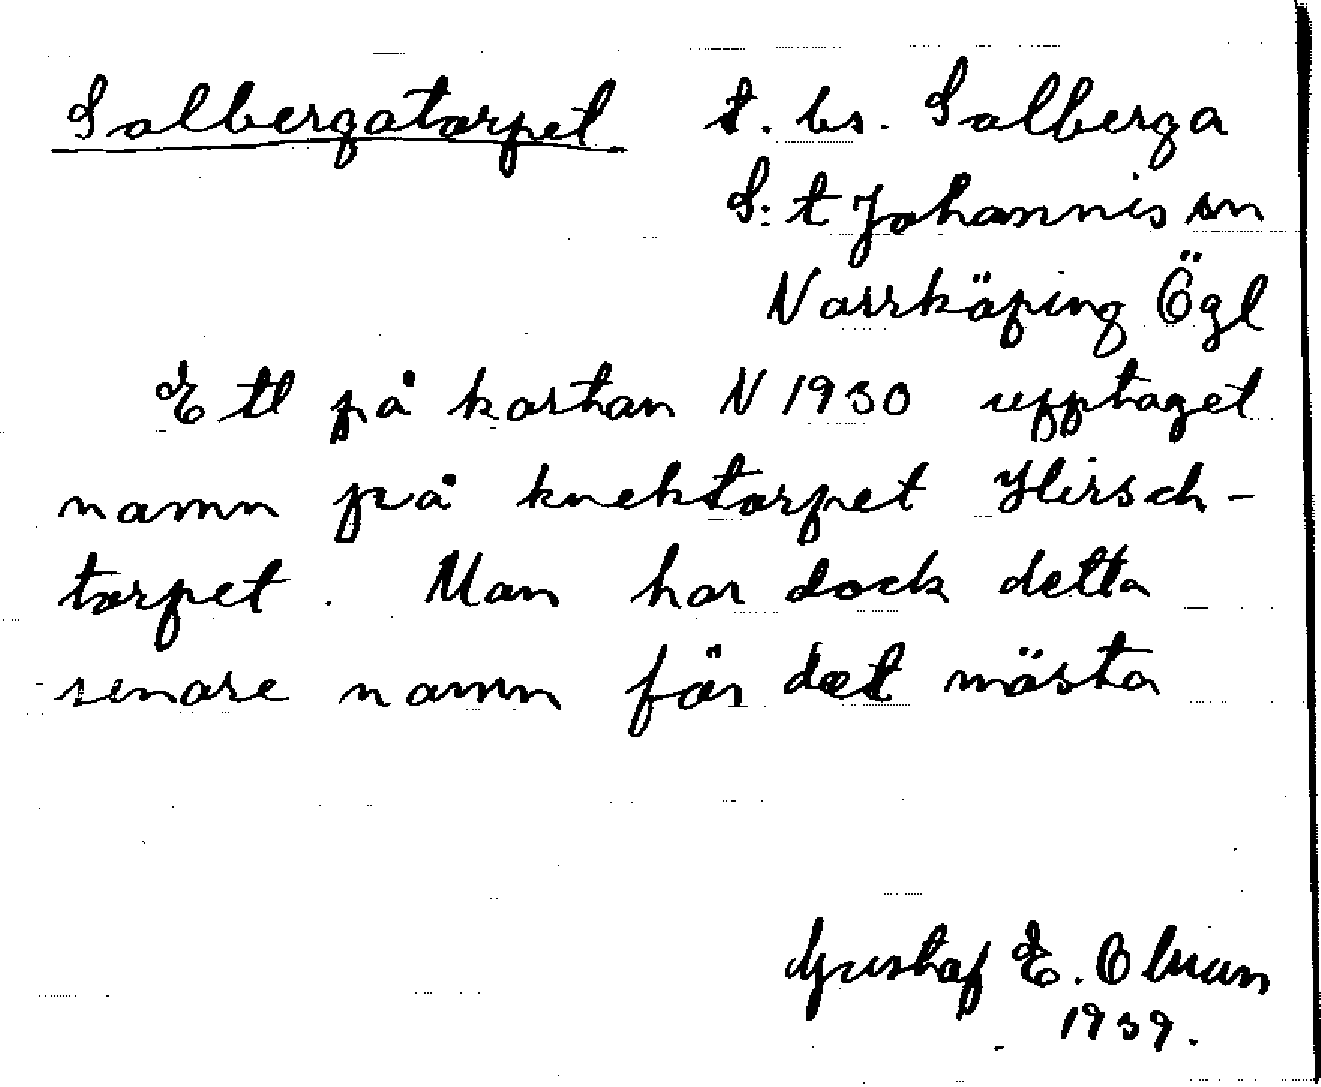 Solbergatorpet t. bs. Solberga
S:t Johannis sn
Norrköping Ögl
Ett på kartan N 1930 upptaget
namn på knektorpet Hirsch-
torpet. Man har dock detta
senare namn för det mästa
Gustaf E.
1939.